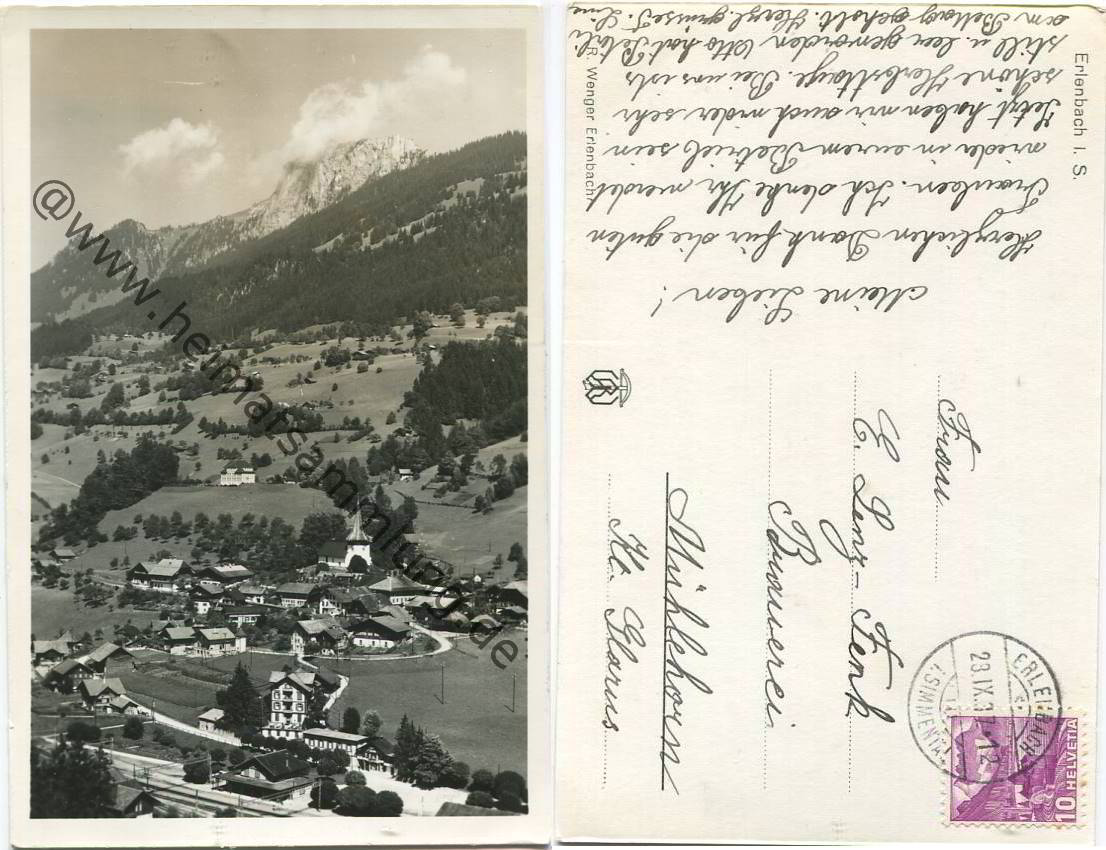 @www.heimatsammlung.de
Erlenbach i. S.
R. Wenger Erlenbach
Meine Lieben!
Herzlichen Dank für die guten
Trauben. Ich denke Ihr werdet
wieder in eurem Betrieb sein
Jetzt haben wir auch wieder sehr
schöne Herbsttage. Bei uns ists
still u. leer geworden Otto hat
am Bettag geholt. Herzl. grüsse
Frau
E. Lenz-Fenk
Brauerei
Mühlehorn
Kt. Glarus
ERLENBACH
(SIMMENTAL)
28.IX.37.12
10 HELVETIA